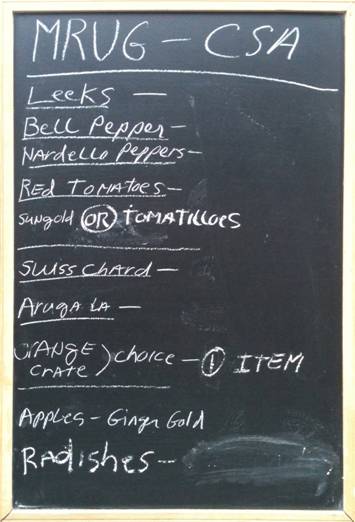 MRUG - CSA
Leeks —
Bell Pepper -
Nardello Peppers -
Red Tomatoes -
Sungold (OR) Tomatilloes
Swiss Chard -
Arugala -
(Orange Crate) choice - (1) ITEM
Apples - Ginger Gold
Radishes -